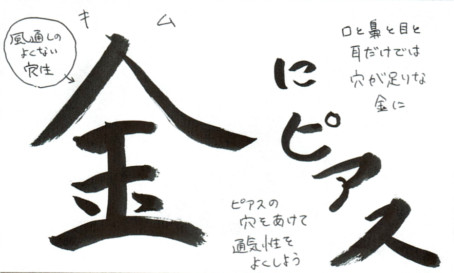 キム
金
にピアス
風通しの
よくない
穴性
口と鼻と目と
耳だけでは
穴が足りな
金に
ピアスの
穴をあけて
通気性を
よくしよう